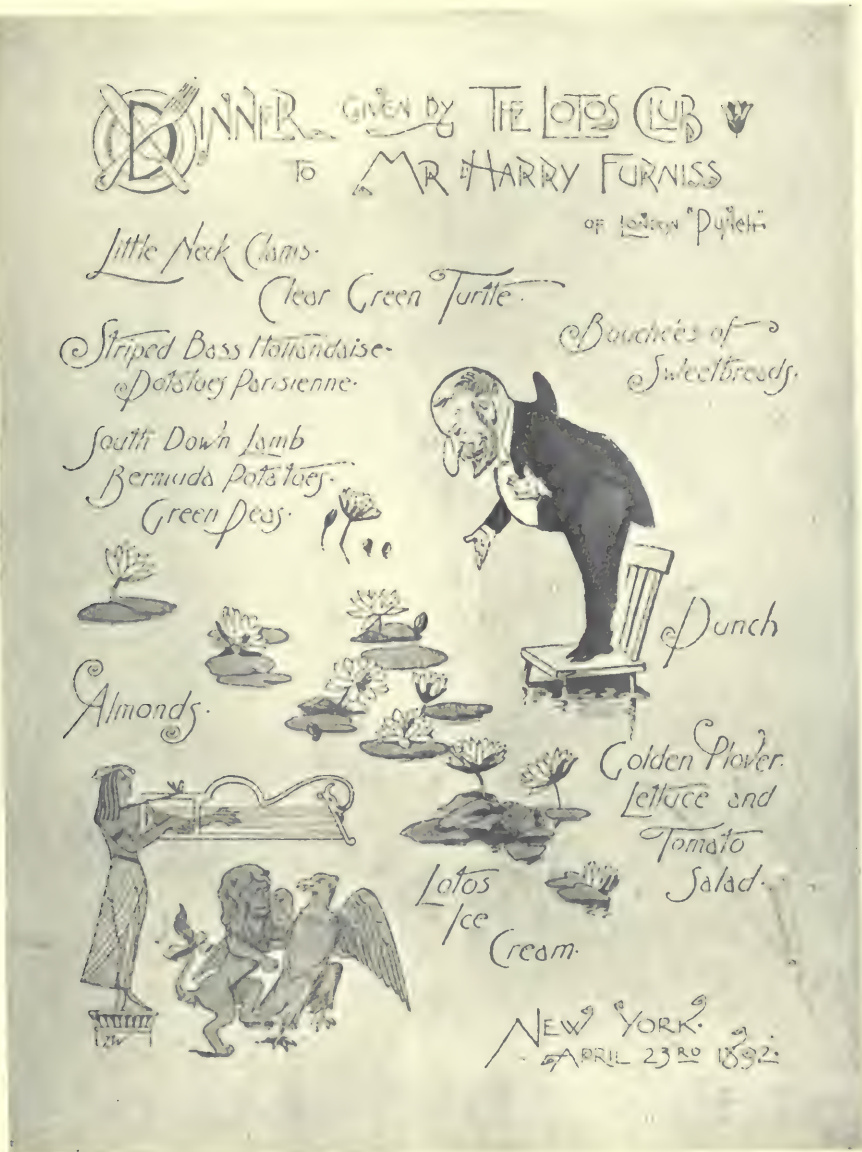 DINNER GIVEN BY THE LOTOS CLUB
TO MR HARRY FURNISS
OF LONDON "PUNCH"
Little Neck Clams.
Clear Green Turtle.
Striped Bass Hollandaise.
Potatoes Parisienne.
Bouchées of
Sweetbreads.
South Down Lamb
Bermuda Potatoes.
Green Peas.
Punch
Almonds.
Golden Plover.
Lettuce and
Tomato
Salad.
Lotos
Ice
Cream.
NEW YORK.
APRIL 23RD 1892.